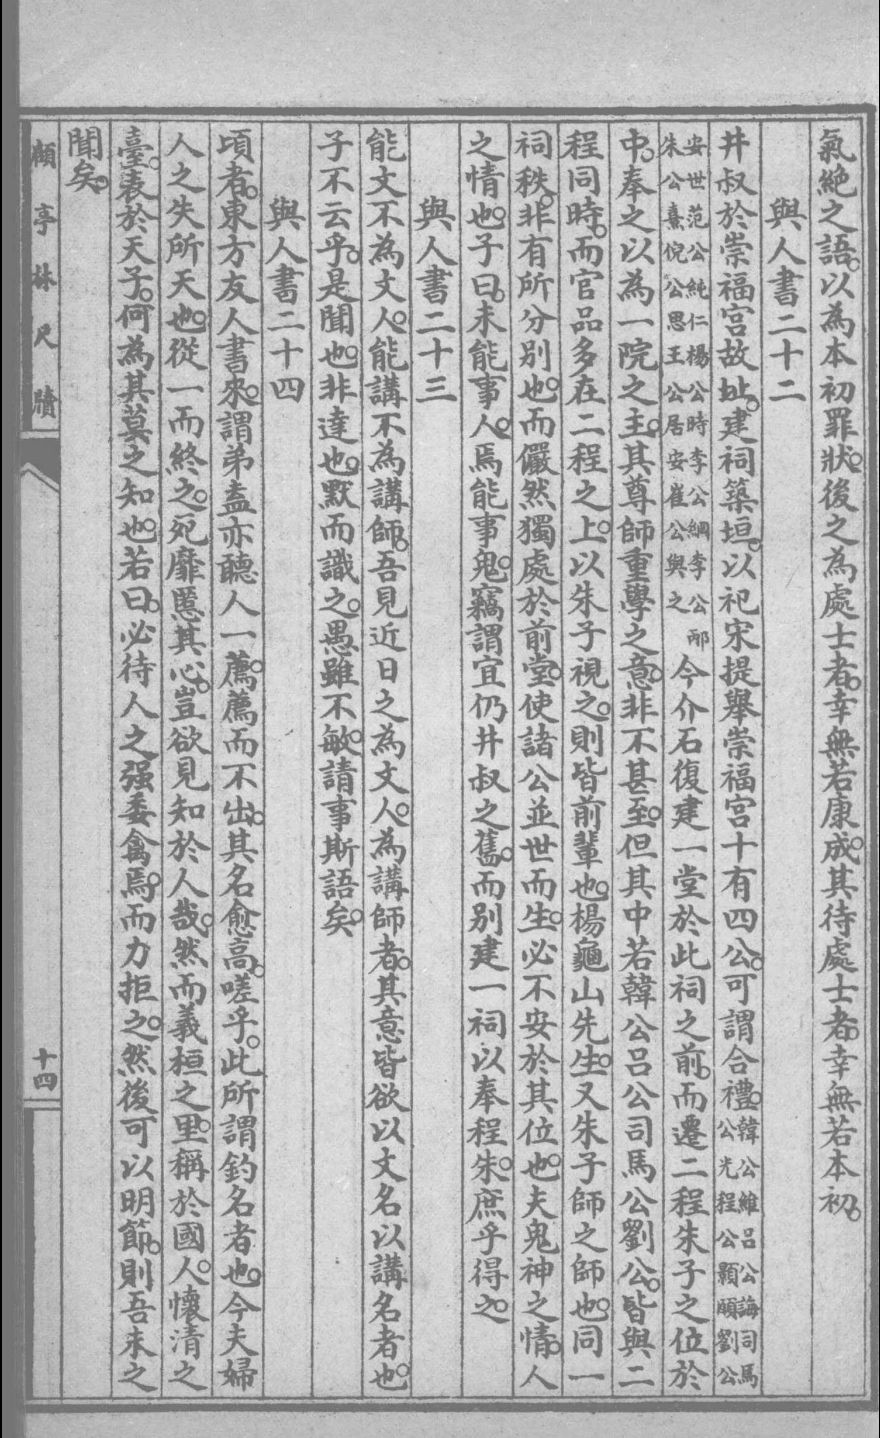 氣絶之語。以為本初罪狀。後之為處士者。幸無若康成。其待處士者。幸無若本初。
與人書二十二
井叔於崇福宮故址。建祠築垣。以祀宋提舉崇福宮十有四公。可謂合禮。韓公維呂公誨司馬公光程公顥頤劉公
安世范公純仁楊公時李公綱李公邴朱公熹倪公思王公居安崔公與之今介石復建一堂於此祠之前。而遷二程朱子之位於
中。奉之以為一院之主。其尊師重學之意。非不甚至。但其中若韓公呂公司馬公劉公。皆與二
程同時。而官品多在二程之上。以朱子視之。則皆前輩也。楊龜山先生。又朱子師之師也。同一
祠秩。非有所分別也。而儼然獨處於前堂。使諸公並世而生。必不安於其位也。夫鬼神之情。人
之情也。子曰。未能事人。焉能事鬼。竊謂宜仍井叔之舊。而别建一祠以奉程朱。庶乎得之。
與人書二十三
能文不為文人。能講不為講師。吾見近日之為文人。為講師者。其意皆欲以文名以講名者也。
子不云乎。是聞也。非達也。默而識之。愚雖不敏。請事斯語矣。
與人書二十四
頃者。東方友人書來。謂弟盍亦聽人一薦。薦而不出。其名愈高。嗟乎。此所謂釣名者也。今夫婦
人之失所天也。從一而終。之死靡慝。其心。豈欲見知於人哉。然而義桓之里。稱於國人。懷清之
臺。表於天子。何為其莫之知也。若曰。必待人之强委禽焉。而力拒之。然後可以明節。則吾未之
聞矣。
顧亭林尺牘
十四